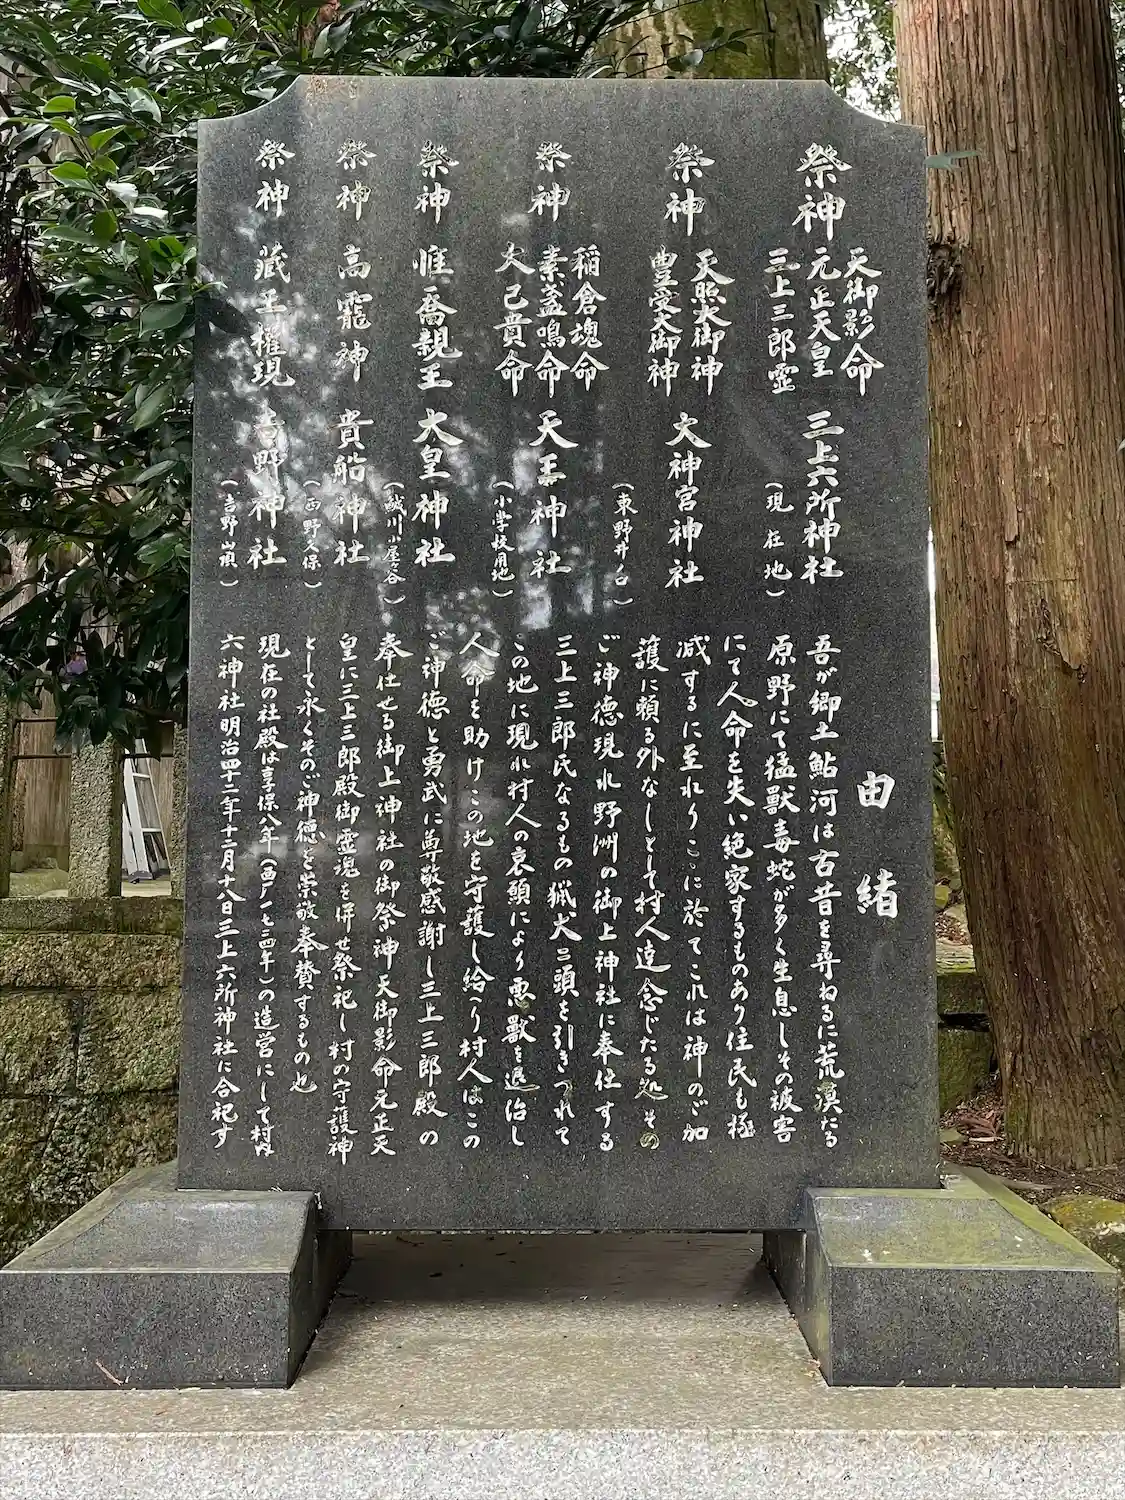 祭神
天御影命
元正天皇
三上三郎霊
三上六所神社
（現在地）
祭神
天照大御神
豊受大御神
大神宮神社
（東野井ノ口）
祭神
稲倉魂命
素盞鳴命
大己貴命
天王神社
（小学校用地）
祭神
惟喬親王
大皇神社
（鹹川小屋ケ谷）
祭神
高龗神
貴船神社
（西野久保）
祭神
蔵王権現
吉野神社
（吉野山嵿）
由緒
吾が郷土鮎河は古昔を尋ねるに荒漠たる
原野にて猛獣毒蛇が多く生息しその被害
にて人命を失い絶家するものあり住民も極
減するに至れりここに於てこれは神のご加
護に頼る外なしとして村人達念じたる処その
ご神徳現れ野洲の御上神社に奉仕する
三上三郎氏なるもの猟犬二頭を引きつれて
この地に現れ村人の哀願により悪獣を退治し
人命を助けこの地を守護し給へり村人はこの
ご神徳と勇武に尊敬感謝し三上三郎殿の
奉仕せる御上神社の御祭神天御影命元正天
皇に三上三郎殿御霊魂を併せ祭祀し村の守護神
として永くそのご神徳を崇敬奉賛するもの也
現在の社殿は享保八年（西厂一七二四年）の造営にして村内
六神社明治四十二年十二月十八日三上六所神社に合祀す